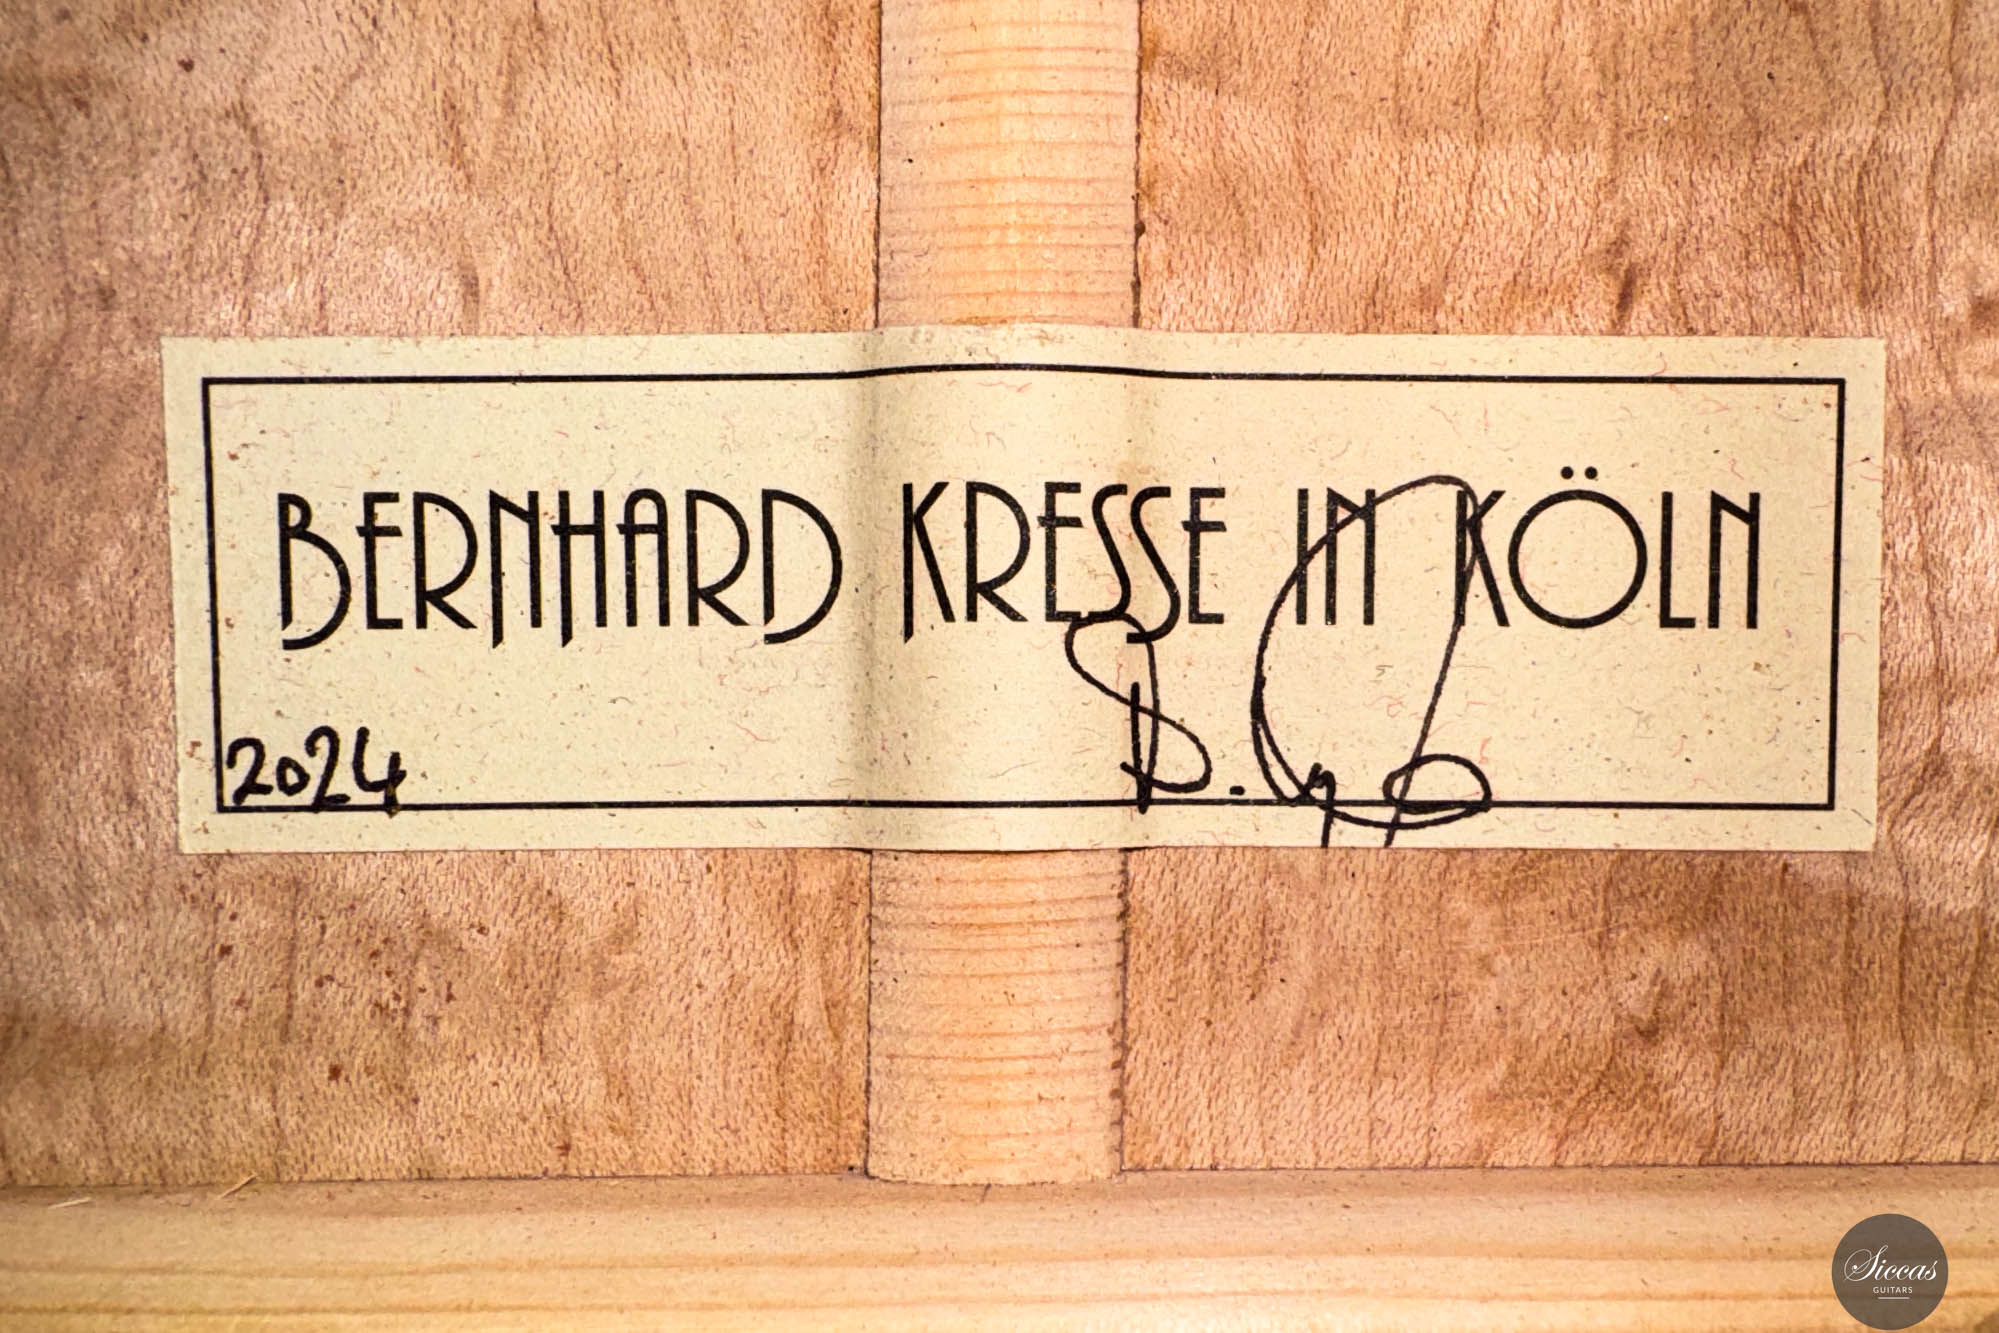 BERNHARD KRESSE IN KÖLN
2024
Siccas
GUITARS